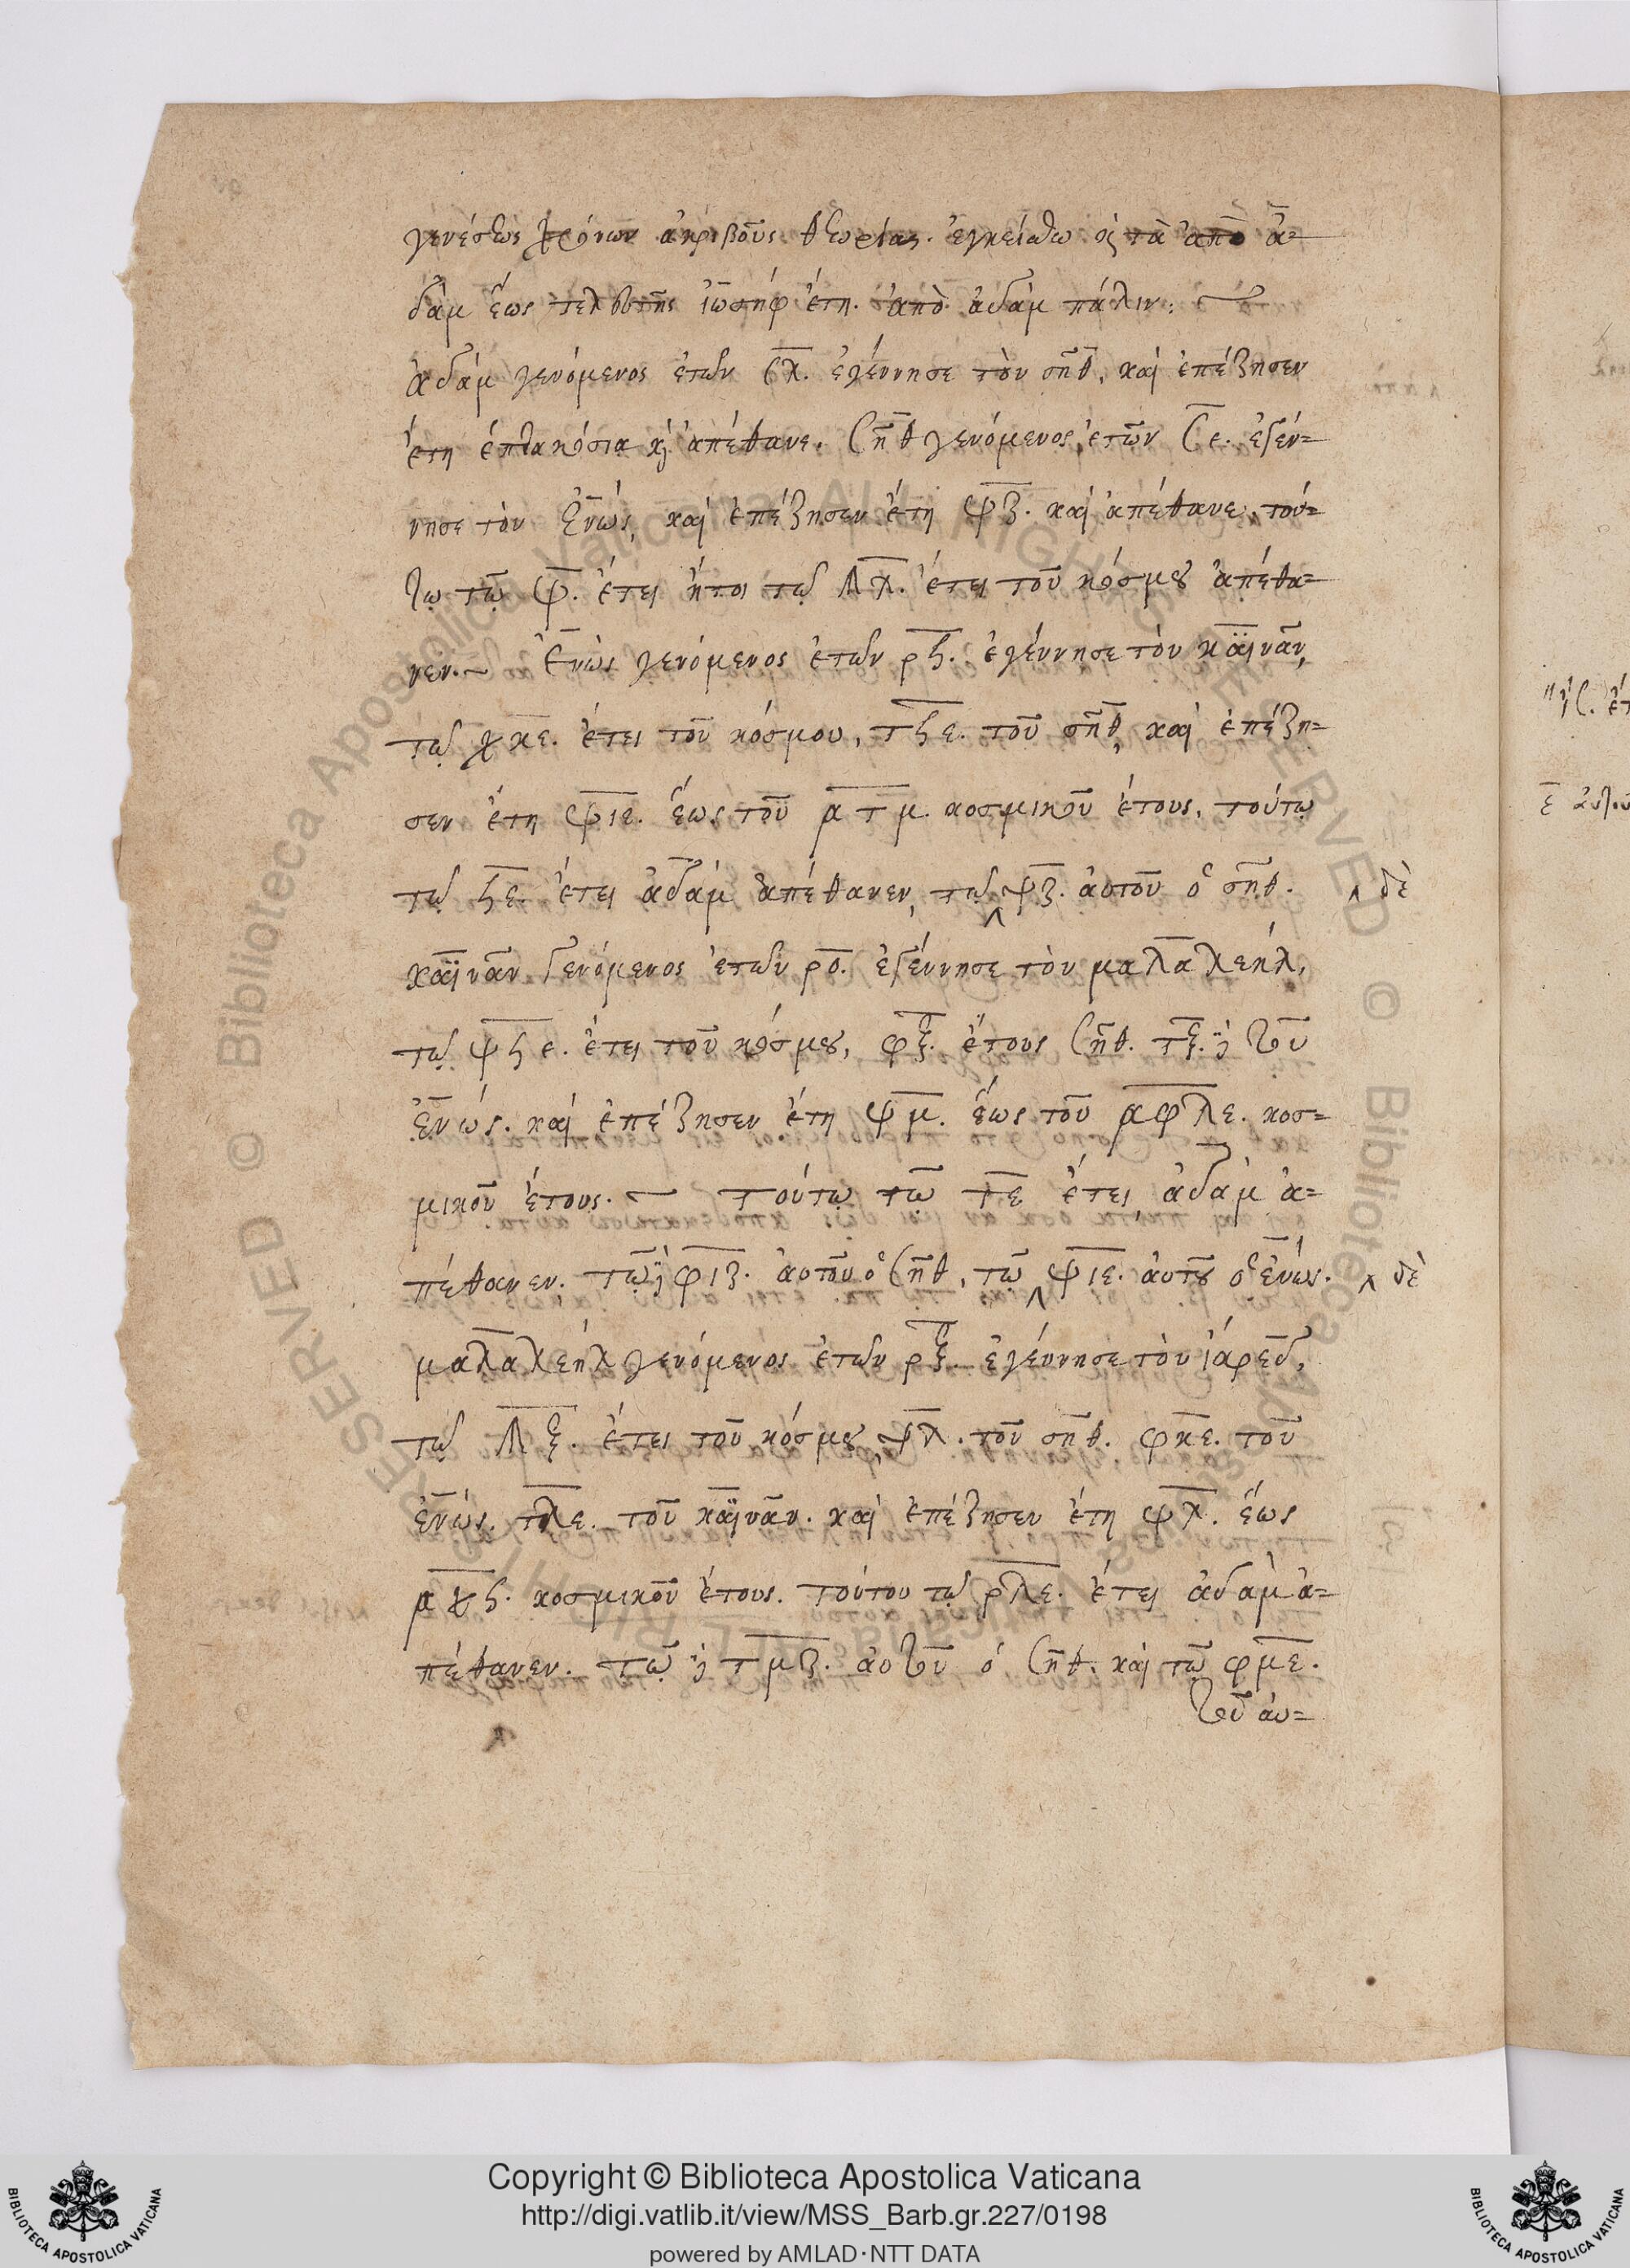 γενέσεως χρόνων ἀκριβοῦς θεωρίας. ἐγκείσθω ϗ τὰ ἀπὸ ἀ=
δὰμ ἕως τελευτῆς ἰωσὴφ ἔτη. ἀπὸ ἀδὰμ πάλιν:
ἀδὰμ γενόμενος ἐτῶν σλ. ἐγέννησε τὸν σὴθ, καὶ ἐπέζησεν
ἔτη ἑπτακόσια ϗ ἀπέθανε. σὴθ γενόμενος ἐτῶν σε. ἐγέν=
νησε τὸν ἐνώς, καὶ ἐπέζησεν ἔτη ψζ. καὶ ἀπέθανε. τού=
τῳ τῷ ψ. ἔτει ἤτοι τῷ ϡλ. ἔτει τοῦ κόσμου ἀπέθα=
νεν. ~ ἐνὼς γενόμενος ἐτῶν ρϟ. ἐγέννησε τὸν καϊνᾶν,
τῷ χκε. ἔτει τοῦ κόσμου, τϟε. τοῦ σὴθ, καὶ ἐπέζη=
σεν ἔτη ψιε. ἕως τοῦ ατμ. κοσμικοῦ ἔτους, τούτῳ
τῷ ϟε. ἔτει ἀδὰμ ἀπέθανεν, τῷ ‸ ψζ. αὐτοῦ ὁ σὴθ. ‸ δὲ
καϊνᾶν γενόμενος ἐτῶν ρο. ἐγέννησε τὸν μαλαλεήλ,
τῷ ψϟε. ἔτει τοῦ κόσμου, φξ. ἔτους σὴθ. τξ. ϗ τοῦ
ἐνώς. καὶ ἐπέζησεν ἔτη ψμ. ἕως τοῦ αφλε. κοσ=
μικοῦ ἔτους. ~ τούτῳ τῷ ρε ἔτει, ἀδὰμ ἀ=
πέθανεν. τῷ ϗ φιζ. αὐτοῦ ὁ σὴθ, τῷ ‸ ψιε. αὐτοῦ ὁ ἐνώς. ‸ δὲ
μαλαλεὴλ γενόμενος ἐτῶν ρξ. ἐγέννησε τὸν ἰάρεδ,
τῷ ϡξ. ἔτει τοῦ κόσμου, ψλ. τοῦ σὴθ. φκε. τοῦ
ἐνώς. τλε. τοῦ καϊνᾶν. καὶ ἐπέζησεν ἔτη ψλ. ἕως
αχϟ. κοσμικοῦ ἔτους. τούτου τῷ ρλε. ἔτει ἀδὰμ ἀ=
πέθανεν. τῷ ϗ τμζ. αὐτοῦ ὁ σὴθ. καὶ τῷ φμε.
τοῦ αὐ=
Copyright © Biblioteca Apostolica Vaticana
http://digi.vatlib.it/view/MSS_Barb.gr.227/0198
powered by AMLAD·NTT DATA